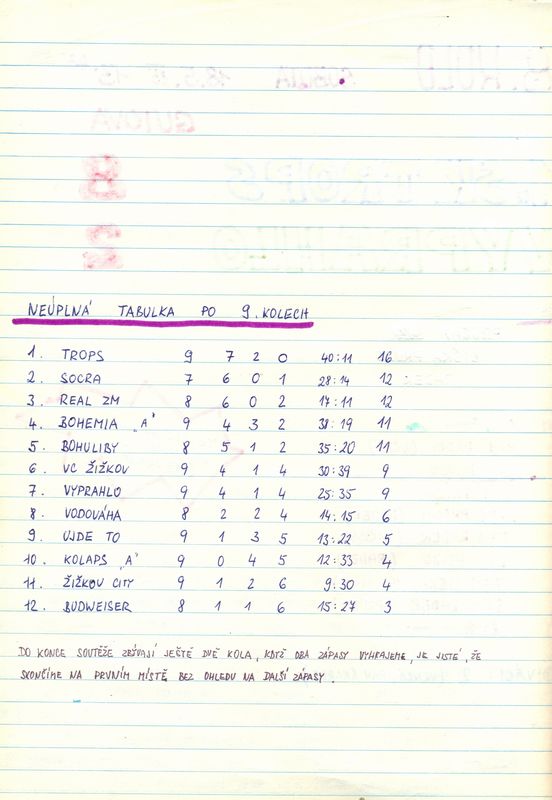 NEÚPLNÁ TABULKA PO 9. KOLECH
1. TROPS 9 7 2 0 40:11 16
2. SOCRA 7 6 0 1 28:14 12
3. REAL ZM 8 6 0 2 17:11 12
4. BOHEMIA „A" 9 4 3 2 31:19 11
5. BOHULIBY 8 5 1 2 35:20 11
6. VC ŽIŽKOV 9 4 1 4 30:39 9
7. VYPRAHLO 9 4 1 4 25:35 9
8. VODOVÁHA 8 2 2 4 14:15 6
9. UJDE TO 9 1 3 5 13:22 5
10. KOLAPS „A" 9 0 4 5 12:33 4
11. ŽIŽKOV CITY 9 1 2 6 9:30 4
12. BUDWEISER 8 1 1 6 15:27 3
DO KONCE SOUTĚŽE ZBÝVAJÍ JEŠTĚ DVĚ KOLA, KDYŽ OBA ZÁPASY VYHRAJEME, JE JISTÉ, ŽE
SKONČÍME NA PRVNÍM MÍSTĚ BEZ OHLEDU NA DALŠÍ ZÁPASY.